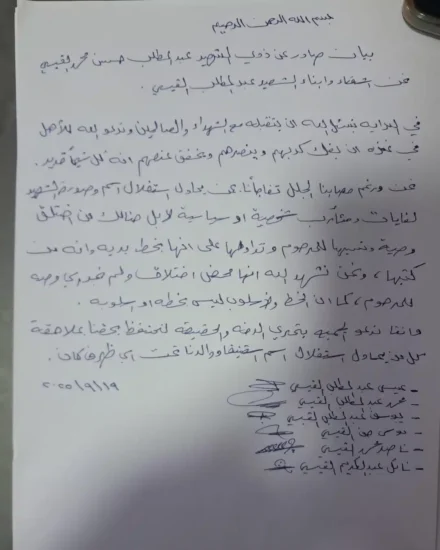 بسم الله الرحمن الرحيم
بيان صادر عن ذوي الشهيد عبد المطلب حسن محمد القيسي
نحن اشقاء وابناء الشهيد عبد المطلب القيسي .
في البداية نسئل الله ان يتقبله مع الشهداء والصالحين وندعو الله للأهل
في غزه ان يفك كربهم وينصرهم ويخفف عنهم انه كل شيء قدير .
نحن ورغم مصابنا الجلل تفاجأنا من يحاول استغلال اسم وصورة الشهيد
لغايات ومئارب شخصية او سياسية لا بل هنالك من اختلق
وصية ونسبها للمرحوم وتداولها على انها بخط يديه وانه من
كتبها ، ونحن نشهد الله انها محض اختلاق ولم وصيه
للمرحوم ، كما ان الخط ليس بخطه او اسلوبه .
واننا ندعو الجميع بتحري الدقه والحقيقه ونحتفظ بحقنا بملاحقة
كل من يحاول استغلال اسم شقيقنا ووالدنا تحت اي ظرف كان .
٢٠٢٥/٩/١٩
- عيسى عبد المطلب القيسي
- محمد عبد المطلب القيسي
- يوسف عبد المطلب القيسي
- موسى حسن القيسي
- ناصر محمد القيسي
- نائل عبد الكريم القيسي